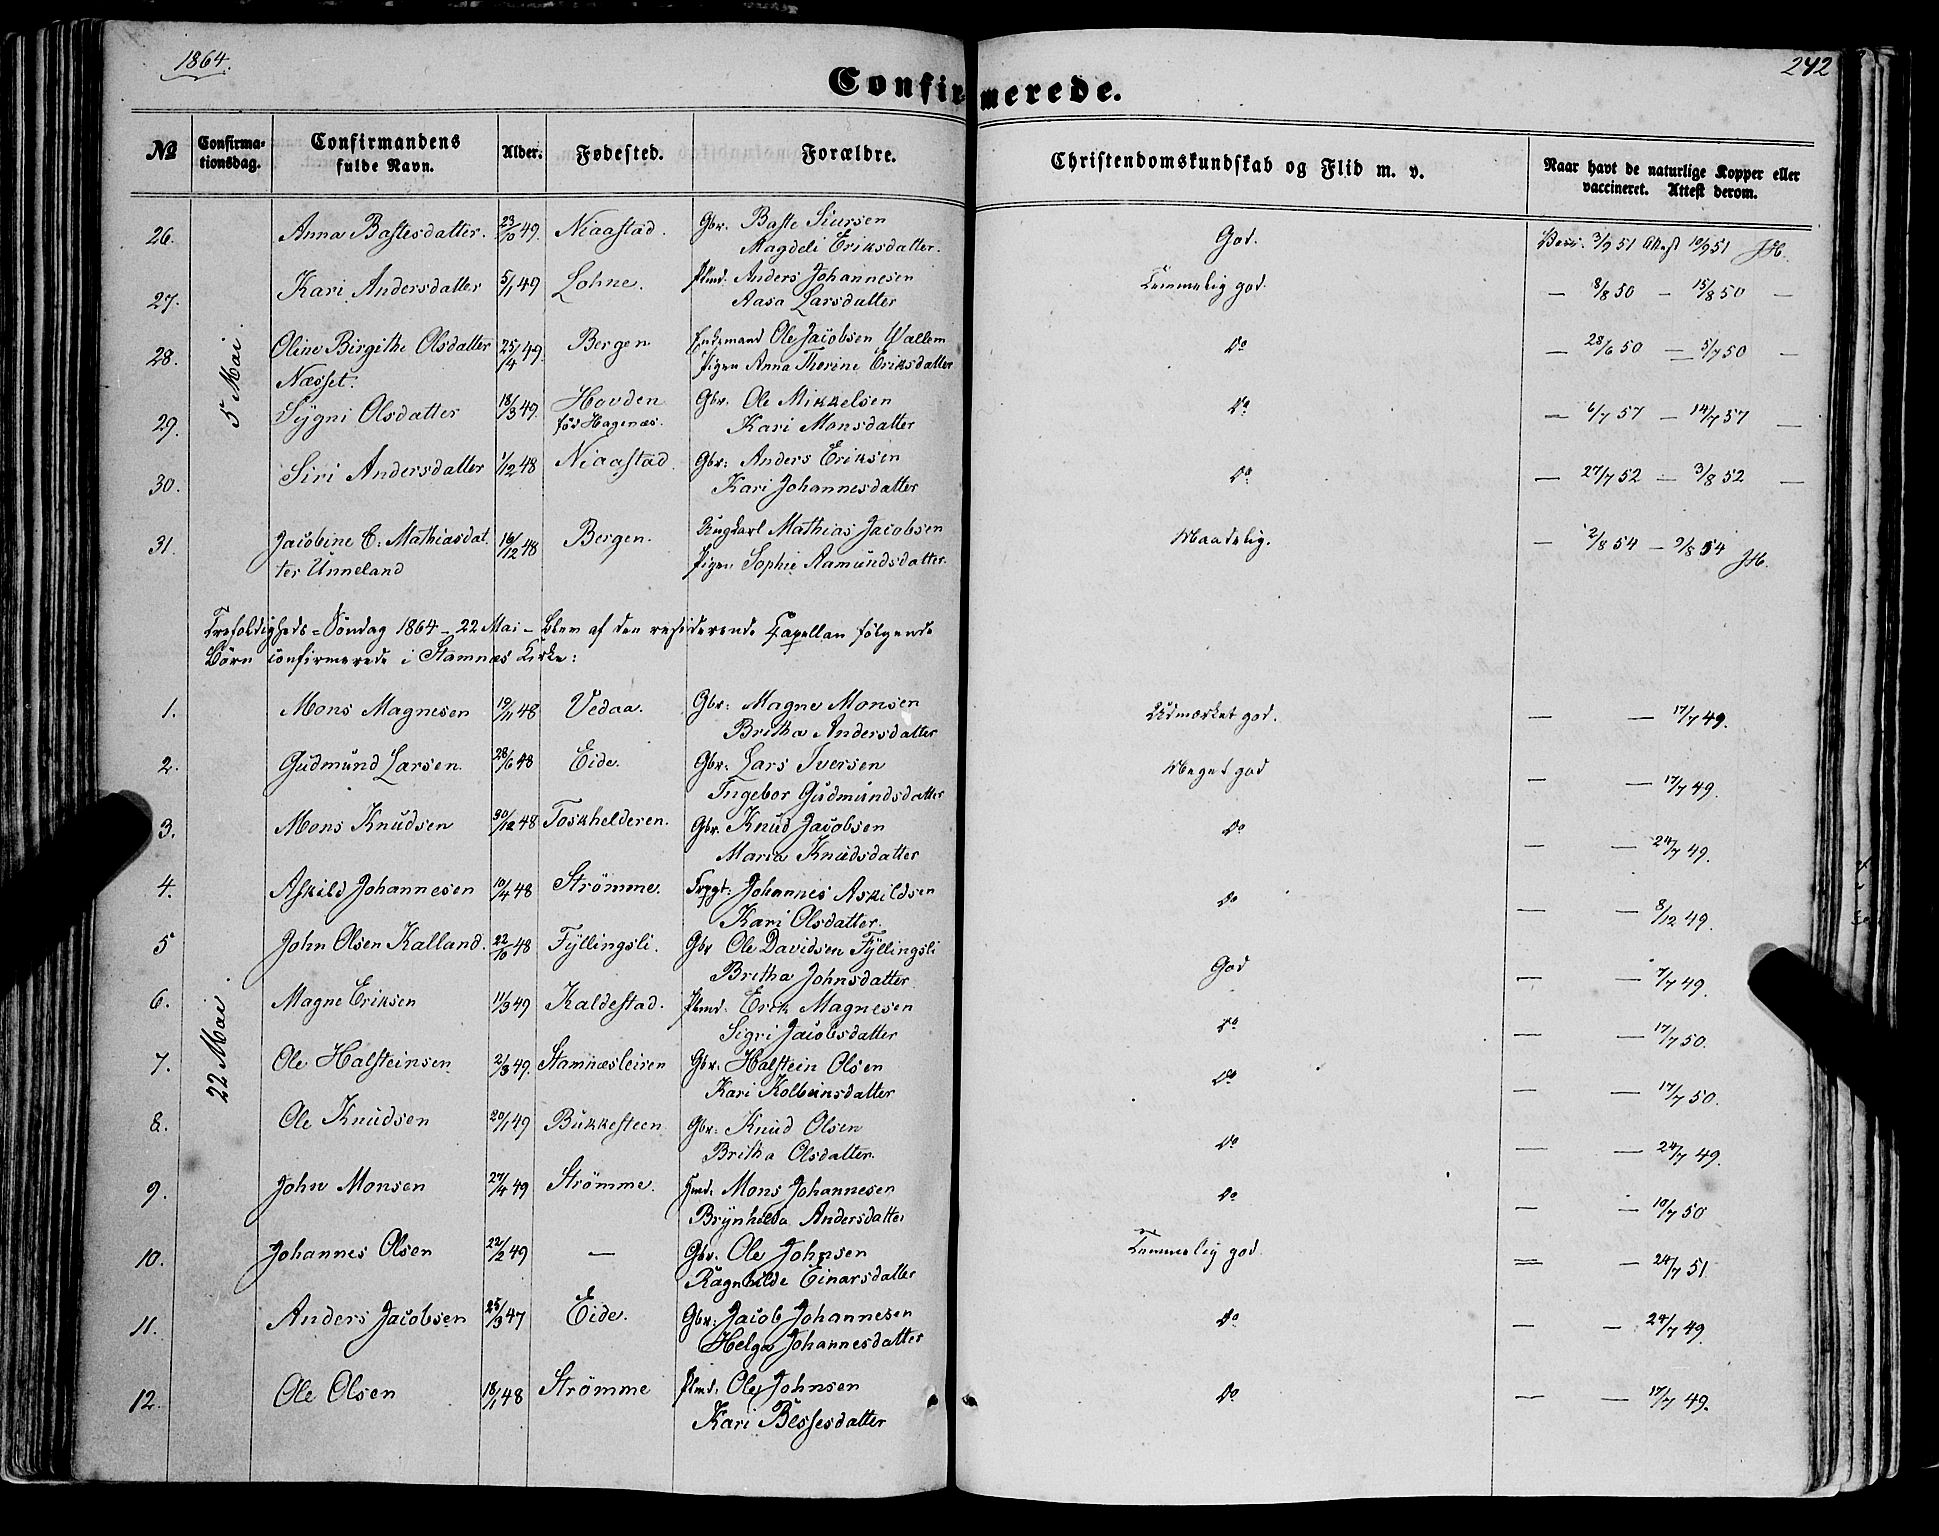 1864.
242
Confirmerede.
№ Confirma- tionsdag. Confirmandens fulde Navn. Alder. Fødested. Forældre. Christendomskundskab og Flid m. v. Naar havt de naturlige Kopper eller vaccineret. Attest derom.
5 Mai.
26. Anna Bastesdatter. 23/10 49. Niaastad. Gbr. Baste Siursen God. Vacc. 3/9 51 Attest 10/9 51 JH.
Magdeli Eriksdatter.
27. Kari Andersdatter 5/1 49 Lohne. Plmd. Anders Johannesen Temmelig god. — 8/8 50 — 15/8 50 —
Aasa Larsdatter
28. Oline Birgithe Olsdatter 25/4 49. Bergen Ole Jacobsen Wallem Do — 28/6 50 — 5/7 50 —
Næsset. Pigen Anna Thorine Eriksdatter
29. Sygni Olsdatter 18/3 49. Hovden Gbr. Ole Mikkelsen Do — 6/7 57 — 14/7 57 —
før Hagenæs. Kari Monsdatter
30. Siri Andersdatter 1/12 48 Niaastad. Gbr. Anders Eriksen Do — 27/7 52 — 3/8 52 —
Kari Johannesdatter
31. Jacobine E. Mathiasdat- 16/12 48 Bergen. Ungkarl Mathias Jacobsen Maadelig. — 2/8 54 — 9/8 54 JH.
ter Unneland Pigen Sophie Aamundsdatter.
Trefoldigheds-Søndag 1864 – 22 Mai – blev af den residerende Capellan følgende
Børn confirmerede i Stamnæs Kirke:
22 Mai
1. Mons Magnesen 19/11 48 Vedaa. Gbr. Magne Monsen Udmærket god. — — 17/7 49.
Britha Andersdatter
2. Gudmund Larsen. 28/6 48 Eide. Gbr. Lars Iversen Meget god — — 17/7 49.
Ingebor Gudmundsdatter
3. Mons Knudsen 30/12 48 Toskhelderen. Gbr. Knud Jacobsen Do — — 24/7 49.
Maria Knudsdatter
4. Askild Johannesen 10/4 48 Strömme. Johannes Askildsen Do — — 8/12 49.
Kari Olsdatter.
5 John Olsen Kalland. 22/10 48 Fyllingsli. Gbr Ole Davidsen Fyllingsli God — — 7/7 49.
Britha Johnsdatter
6. Magne Eriksen 11/3 49 Kaldestad. Plmd. Erik Magnesen Do — — 17/7 50.
Sigri Jacobsdatter
7. Ole Halsteinsen 2/3 49. Stamnæsleiren Gbr. Halstein Olsen Do — — 17/7 50.
Kari Kolbeinsdatter
8. Ole Knudsen 20/1 49 Bukkesteen Gbr. Knud Olsen Do — — 24/7 49.
Britha Olsdatter.
9. John Monsen 27/4 49 Strömme. Hmd. Mons Johannesen Do — — 10/7 50
Brynhilda Andersdatter
10. Johannes Olsen 22/2 49 — Gbr. Ole Johnsen Temmelig god. — — 24/7 51
Ragnhilde Einarsdatter
11. Anders Jacobsen 25/3 47 Eide. Gbr. Jacob Johannesen Do — — 24/7 49.
Helga Johannesdatter
12. Ole Olsen 18/1 48 Strömme Plmd. Ole Johnsen Do — — 17/7 49.
Kari Bessesdatter